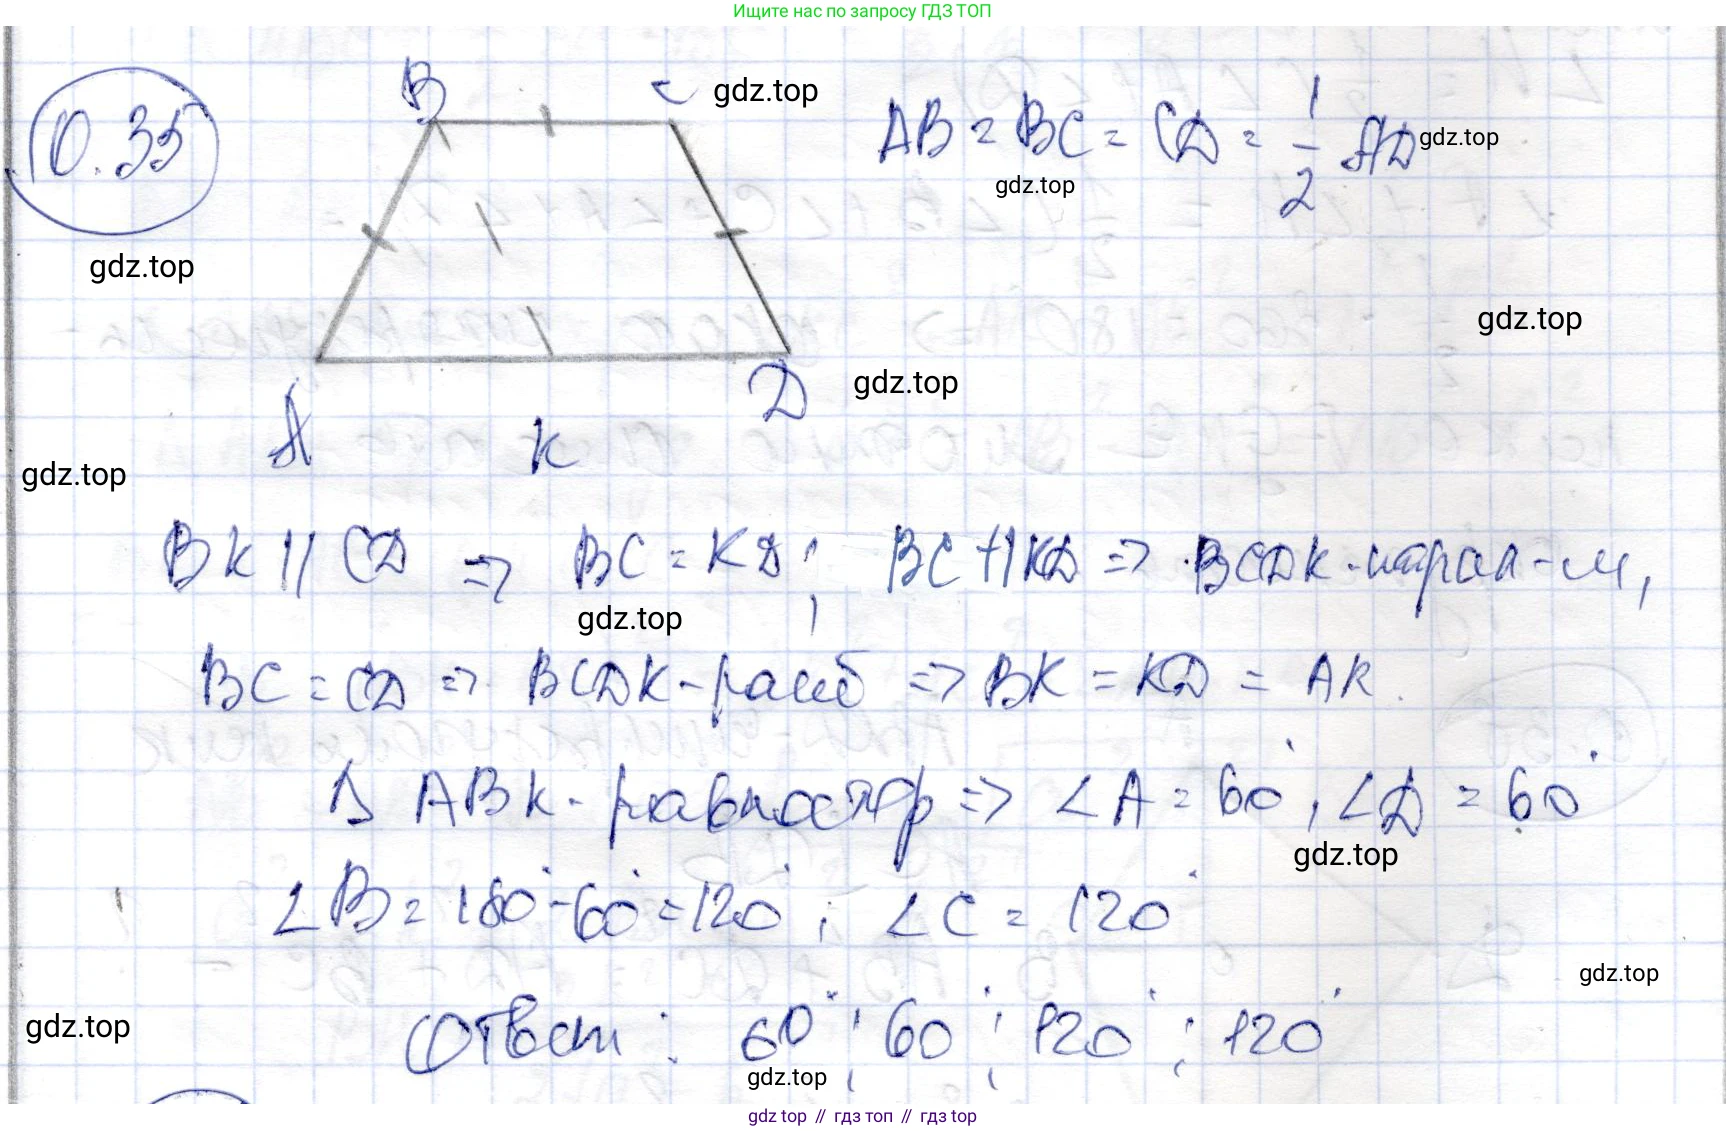 Ищите нас по запросу ГДЗ ТОП
0.35
B
C
gdz.top
AB = BC = CD = 1/2 AD
gdz.top
gdz.top
gdz.top
gdz.top
gdz.top
A
K
D
gdz.top
BK || CD => BC = KD; BC || KD => BCDK - парал-м,
gdz.top
BC = CD => BCDK - ромб => BK = KD = AK.
Δ ABK - равностор => ∠A = 60°, ∠D = 60°
gdz.top
∠B = 180° - 60° = 120°; ∠C = 120°
gdz.top
gdz.top
Ответ: 60°; 60°; 120°; 120°
gdz.top
gdz top // гдз топ // гдз top